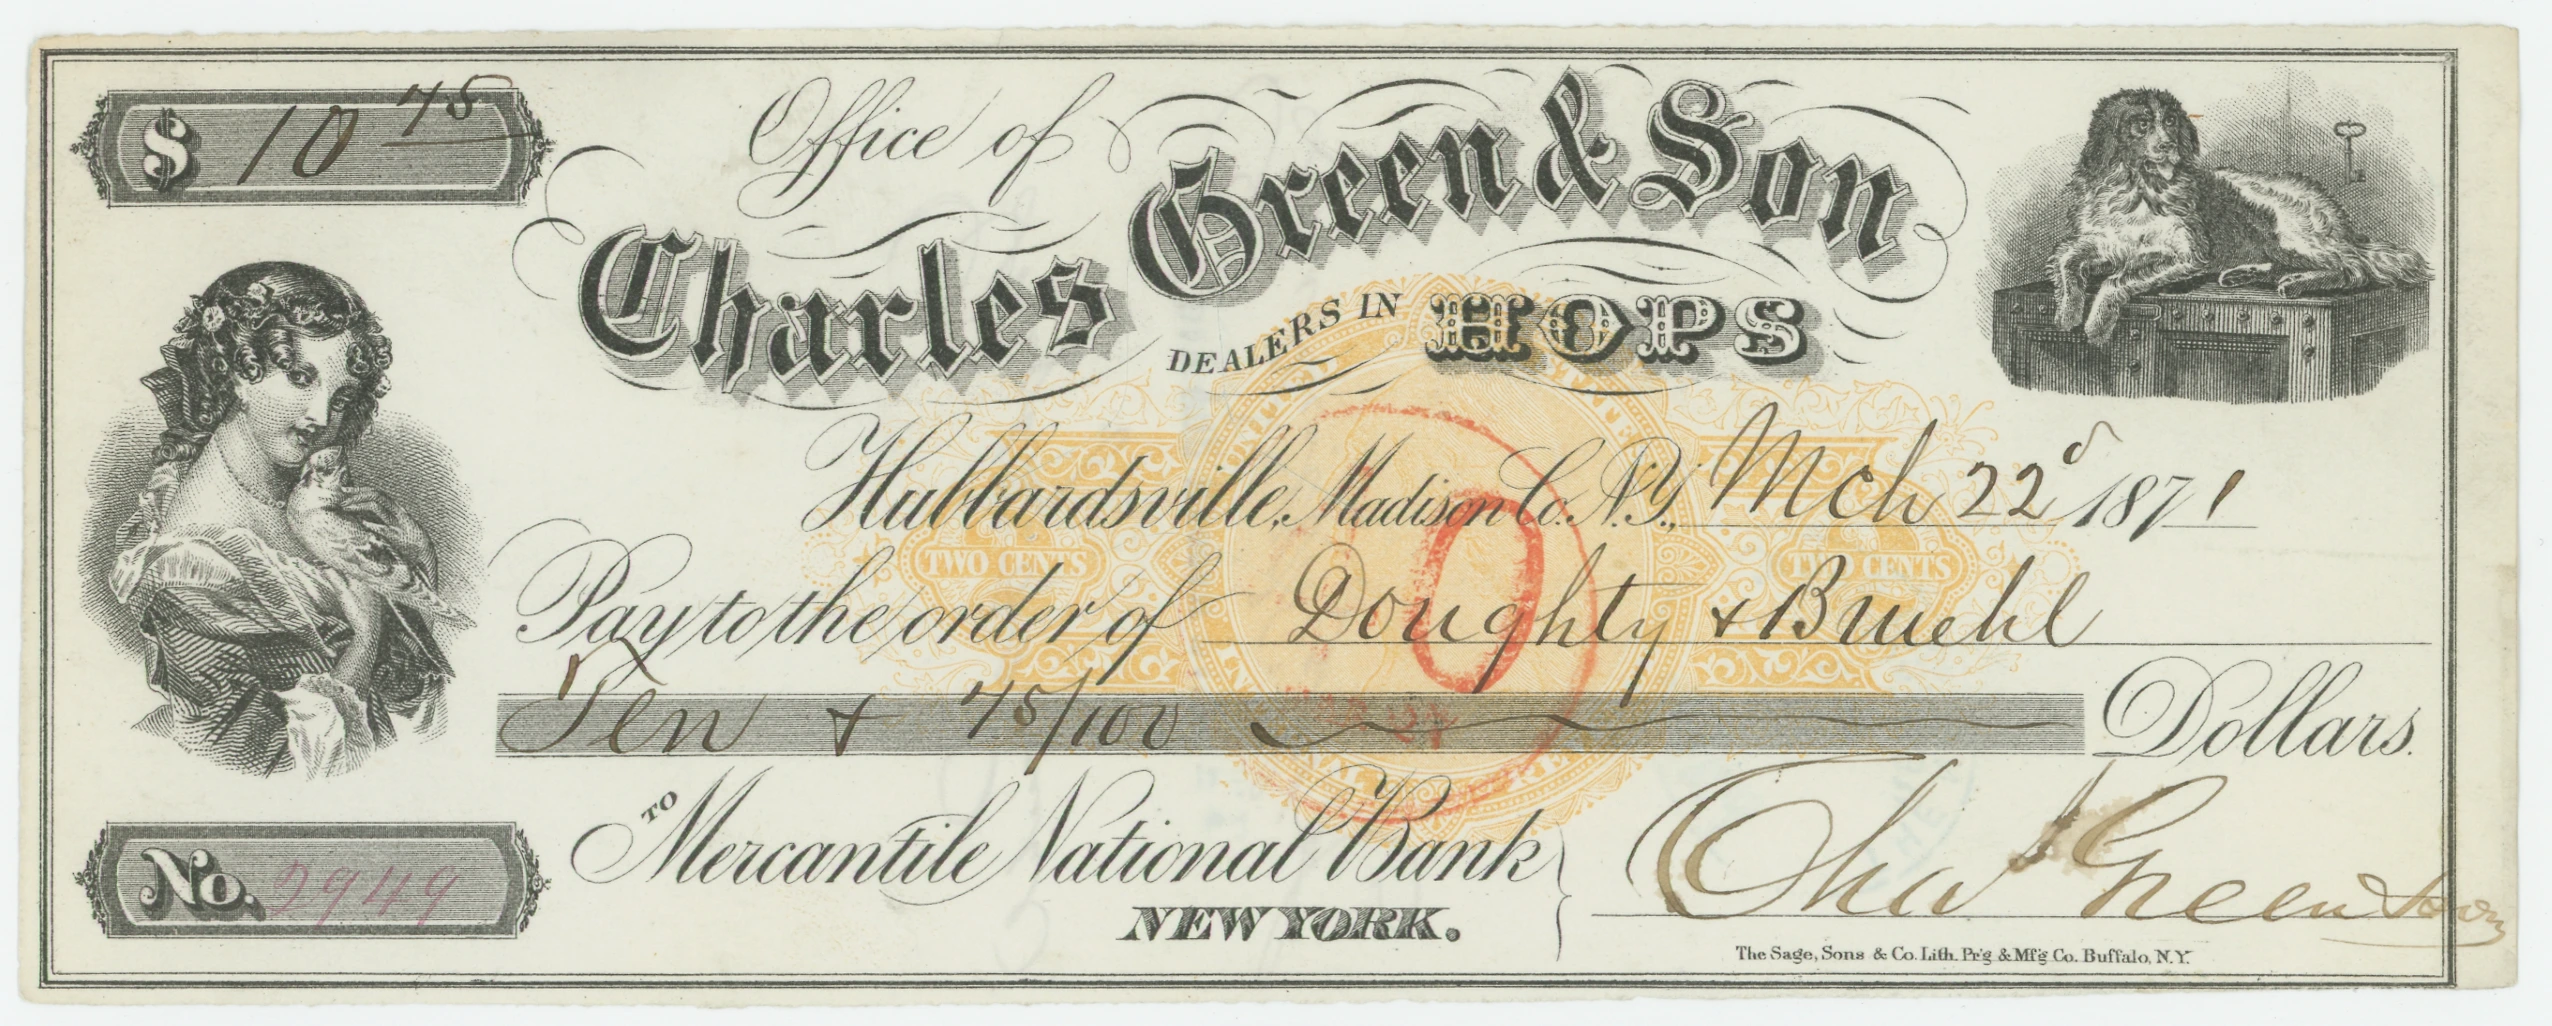 $ 10 75
Office of
Charles Green & Son
DEALERS IN HOPS
Hubbardsville, Madison Co. N.Y., Mch 22d 1871
TWO CENTS TWO CENTS
Pay to the order of Doughty & Bruehl
Ten & 75/100 Dollars.
TO Mercantile National Bank
NEW YORK.
Chas Green & Son
No. 2949
The Sage, Sons & Co. Lith. Pr'g & Mf'g Co. Buffalo, N.Y.